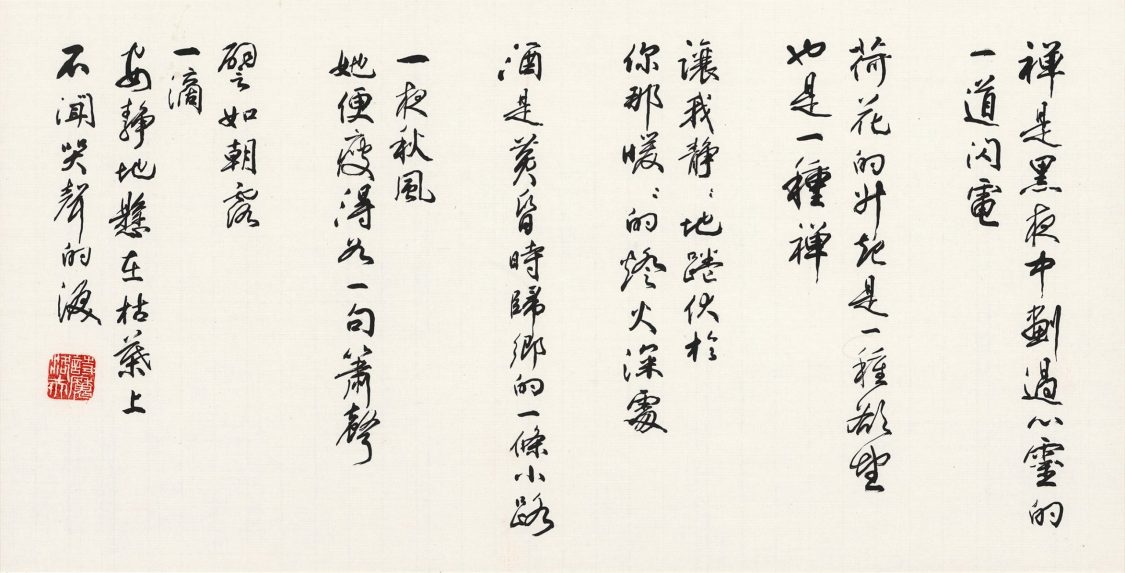 禅是黑夜中劃過心靈的
一道闪電
荷花的升起是一種欲望
也是一種禅
讓我静〻地蹉伏於
你那暖〻的燈火深處
酒是黄昏時歸鄉的一條小路
一夜秋風
她便瘦得如一句簫聲
譬如朝露
一滴
安静地懸在枯葉上
不聞哭聲的淚
詩魔
洛夫